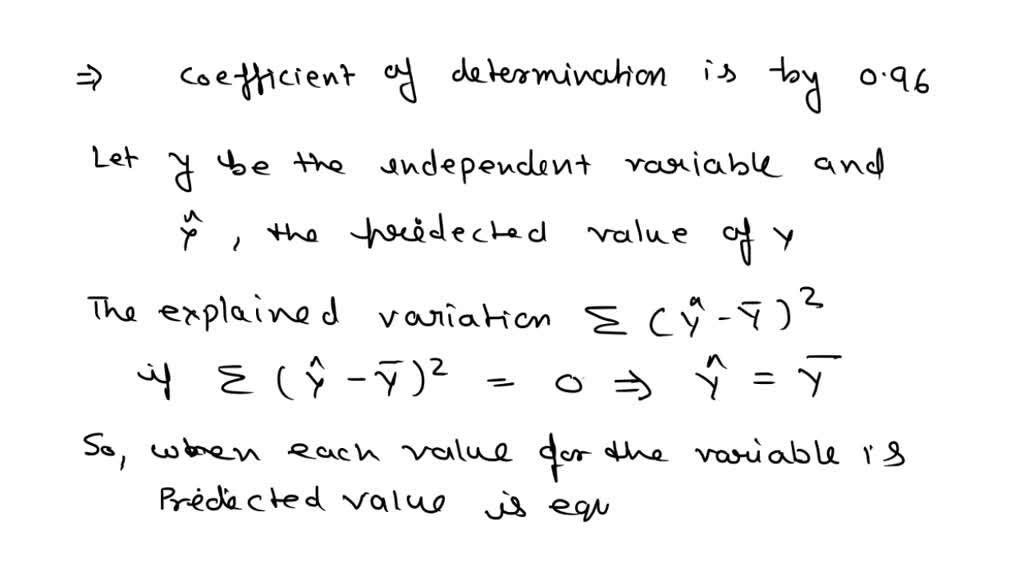 ⇒ coefficient of determination is by 0.96
Let y be the independent variable and
ŷ, the predected value of y
The explained variation Σ(ŷ-ȳ)²
if Σ(ŷ-ȳ)² = 0 ⇒ ŷ = ȳ
So, when each value for the variable is
Predected value is equ